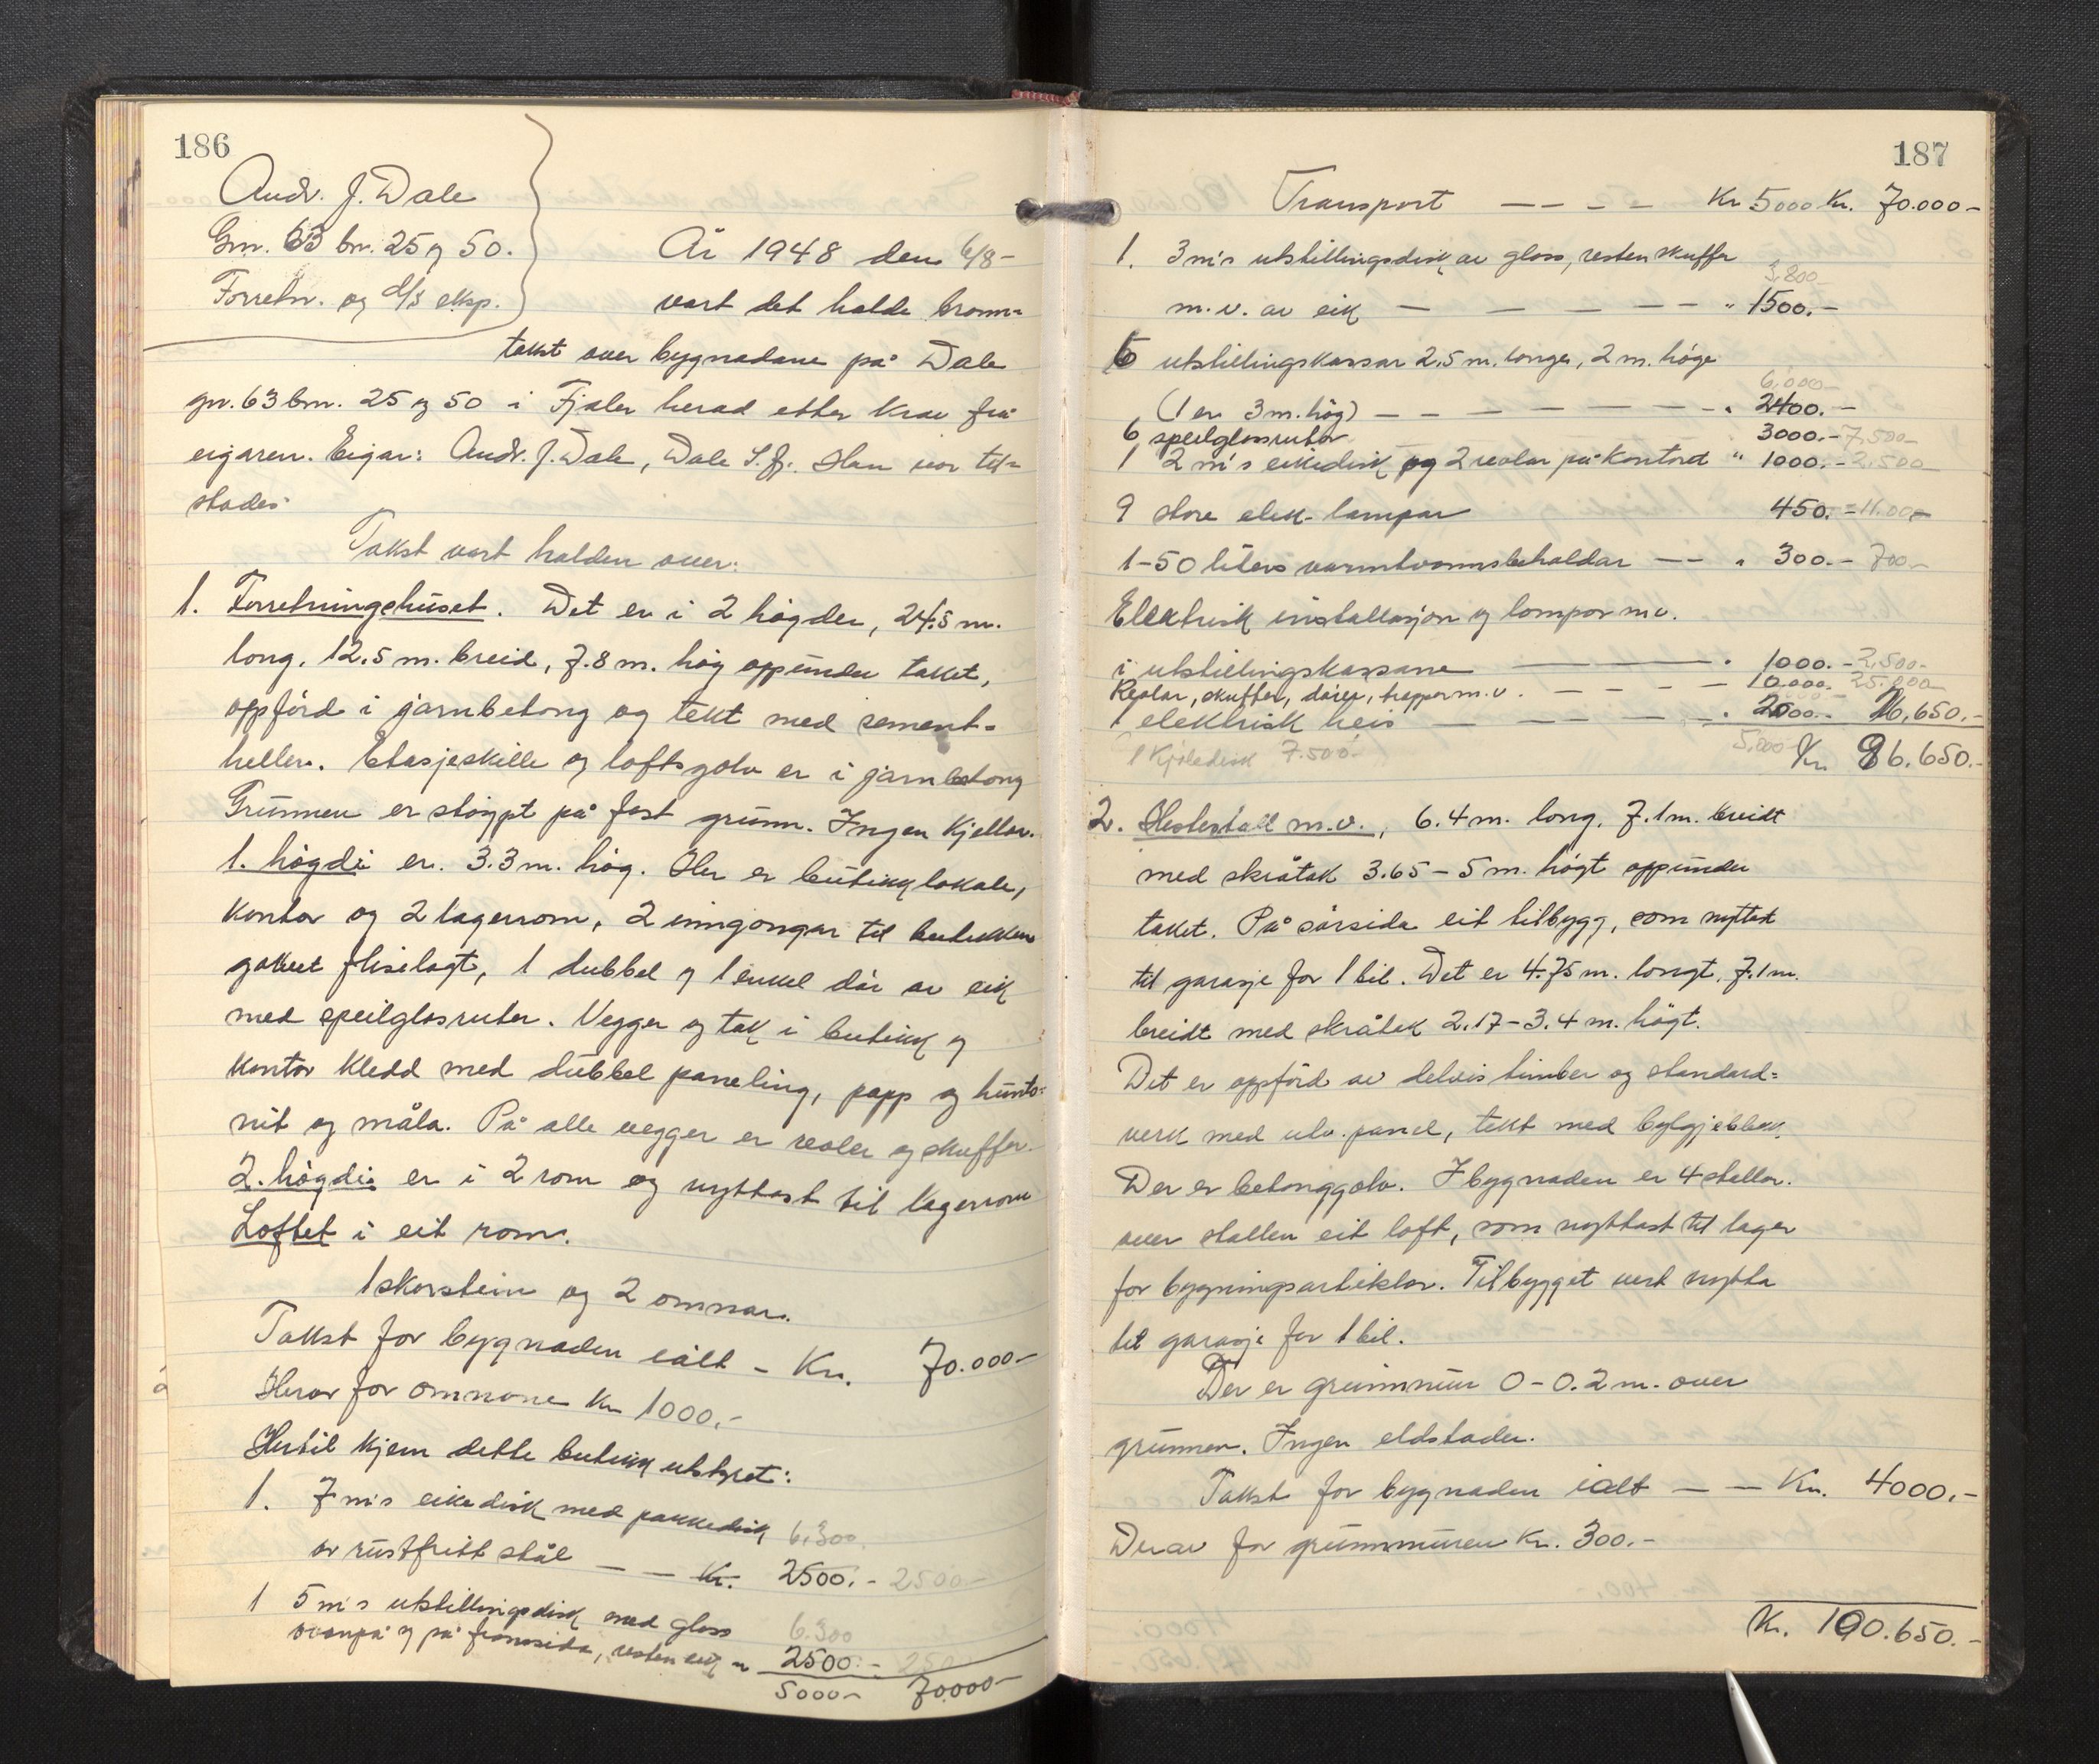 186
Andr. J. Dale
Gnr. 63 bnr. 25 og 50.
Forretn. og d/s eksp.
År 1948 den 6/8-
vart det halde brann=
takst over bygnadane på Dale
gnr. 63 bnr. 25 og 50 i Fjaler herad etter krav frå
eigaren. Eigar: Andr. J. Dale, Dale S.fj. Han var til=
stades
Takst vart halden over:
1. Forretningshuset. Det er i 2 högder, 24.5 m.
long. 12.5 m. breid, 7.8 m. hög oppunder taket,
oppförd i jarnbetong og tekt med sement-
heller. Etasjeskille og loftsgolv er i jarnbetong
Grunnen er stöypt på fast grunn. Ingen kjellar.
1. högdi er 3.3 m. hög. Her er butikklokale,
kontor og 2 lagerrom, 2 inngongar til butikken
golvet fliselagt, 1 dubbel og 1 enkel dör av eik
med speilglasruter. Vegger og tak i butikk og
kontor kledd med dubbel paneling, papp og hunto=
nit og måla. På alle vegger er reoler og skuffer.
2. högdi er i 2 rom og nyttast til lagerrom
Loftet i eit rom.
1 skorstein og 2 omnar.
Takst for bygnaden ialt - Kr. 70.000-
Herav for omnane kr 1000.-
Hertil kjem dette butikk utstyret:
1. 7 m's eikedisk med pakkedisk 6.300.
av rustfritt stål — — Kr. 2500.- 2500-
1 5 m's utstillingsdisk med glass 6.300
ovanpå og på framsida, resten eik " 2500.- 250
5000- 70.000-
187
Transport — — — — Kr 5000 Kr. 70.000-
1. 3 m's utstillingsdisk av glass, resten skuffer
3.800
m.v. av eik — — — — — " 1500.-
6 utstillingskassar 2.5 m. longe, 2 m. höge
6.000-
(1 er 3 m. hög) — — — — — — " 2400.-
6 speilglassruter 3000.- 7.500-
1 2 m's eikedisk og 2 reolar på kontoret " 1000.- 2.500
9 store elek. lampar 450.- = 11.00,-
1-50 liters varmtvannsbeholdar — — " 300.- 700-
Elektrisk installasjon og lampor m.v.
i utstillingskassane — — " 1000.- 2,500-
Reolar, skuffer, dörer, trapper m.v. — — — — 10.000. 25.000
1 elektrisk heis — — — — — " 2000.- 26,650.-
1 Kjöledisk 7.500.- 5,000- Kr. 96.650.-
2. Hestestall m.v., 6.4 m. long. 7.1 m. breidt
med skråtak 3.65 - 5 m. högt oppunder
taket. På sörsida eit tilbygg, som nyttast
til garasje for 1 bil. Det er 4.75 m. longt. 7.1 m.
breidt med skråtak 2.17-3.4 m. högt.
Det er oppförd av delvis timber og standard=
verk med utv. panel, tekt med bylgjeblekk.
Der er betonggolv. I bygnaden er 4 stallar.
over stallen eit loft, som nyttast til lager
for bygningsartiklar. Tilbygget vert nytta
til garasje for 1 bil.
Der er grunnmur 0-0.2 m. over
grunnen. Ingen eldstader.
Takst for bygnaden ialt — — Kr. 4000.-
Derav for grunnmuren Kr. 300.-
Kr. 100.650.-